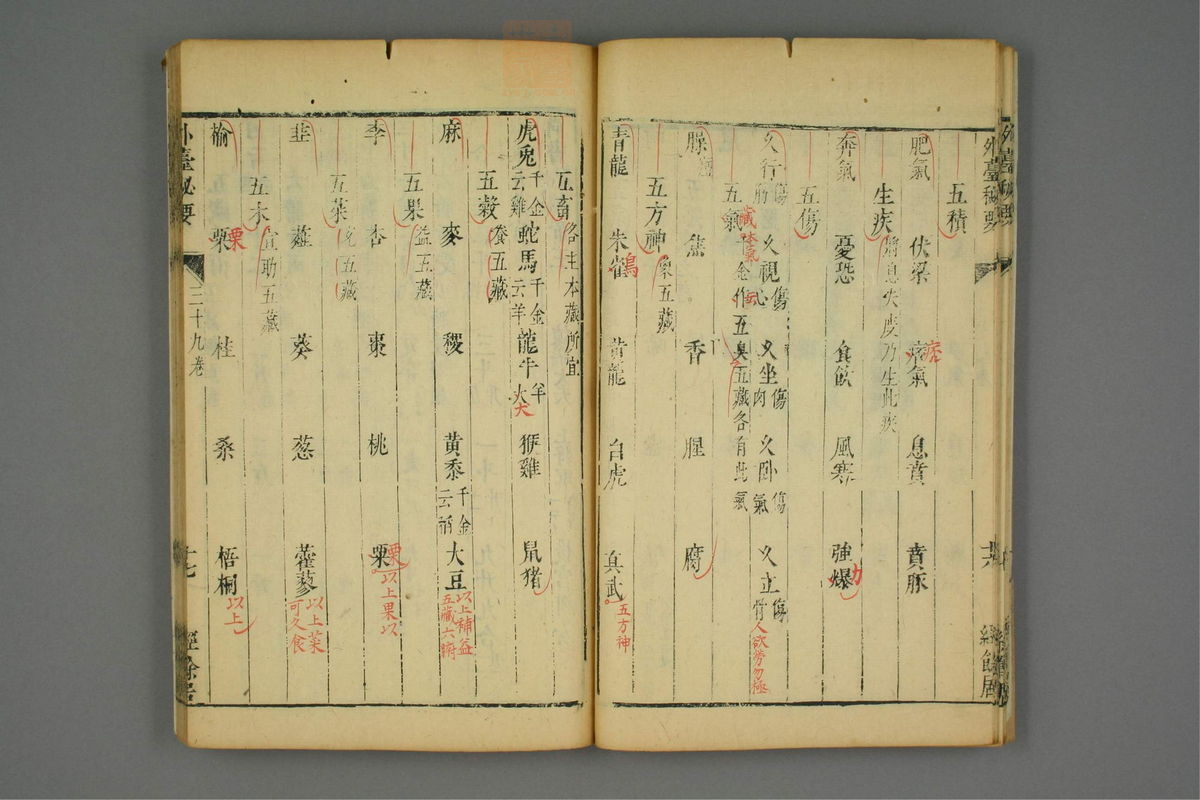 外臺秘要
十六
經餘居
五積
肥氣 伏梁 痞氣 息賁 賁豚
痞
生疾 乃生此疾
奔氣 憂恐 食飲 風寒 強爆
力
五傷
久行傷筋 久視傷心 久坐傷肉 久臥傷氣 久立傷骨
人欲勞勿極
五氣千金作五臭五藏各有此氣
藏本氣
臊 焦 香 腥 腐
五方神象五藏
青龍 朱雀 黄龍 白虎 真武
五方神
五畜各主本藏所宜
虎兎千金云雞 蛇馬千金云羊 龍牛羊火 猴雞 鼠猪
犬
五穀養五藏
麻 麥 稷 黄黍千金云稍 大豆
以上補益五藏六腑
五果益五藏
李 杏 棗 桃 栗
栗 以上果以
五菜充五藏
韭 薤 葵 葱 藿蓼
以上菜可久食
五木宜助五藏
榆 栗 桂 桑 梧桐
栗 以上
外臺秘要
三十九卷
十七
經餘居